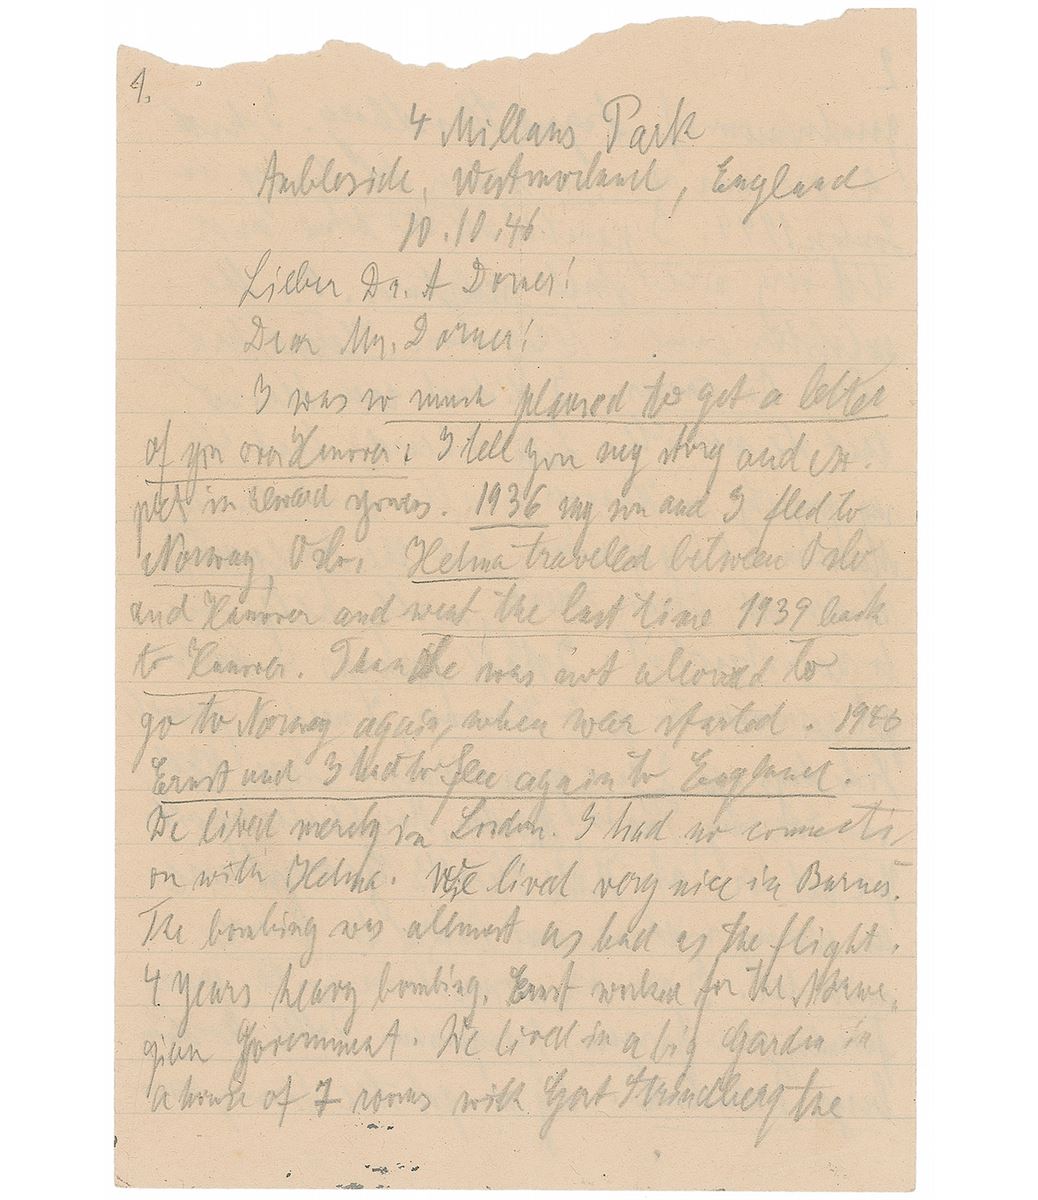 1.
4 Millans Park
Ambleside, Westmorland, England
10.10.46.
Lieber Dr. A Dorner!
Dear Mr. Dorner!
I was so much pleased to get a letter
of you over Hanover. I tell you my story and ex-
pect in reward yours. 1936 my son and I fled to
Norway, Oslo. Helma travelled between Oslo
and Hanover and went the last time 1939 back
to Hanover. Than she was not allowed to
go to Norway again, when war started. 1940
Ernst and I had to flee again to England.
We lived merely in London. I had no connecti-
on with Helma. We lived very nice in Barnes.
The bombing was allmost as bad as the flight.
4 years heavy bombing. Ernst worked for the Norwe-
gian Government. We lived in a big Garden in
a house of 7 rooms with Gert Strindberg the